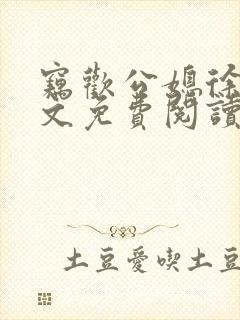 竊歡公媳徐
文免費閱讀
土豆愛喫土豆